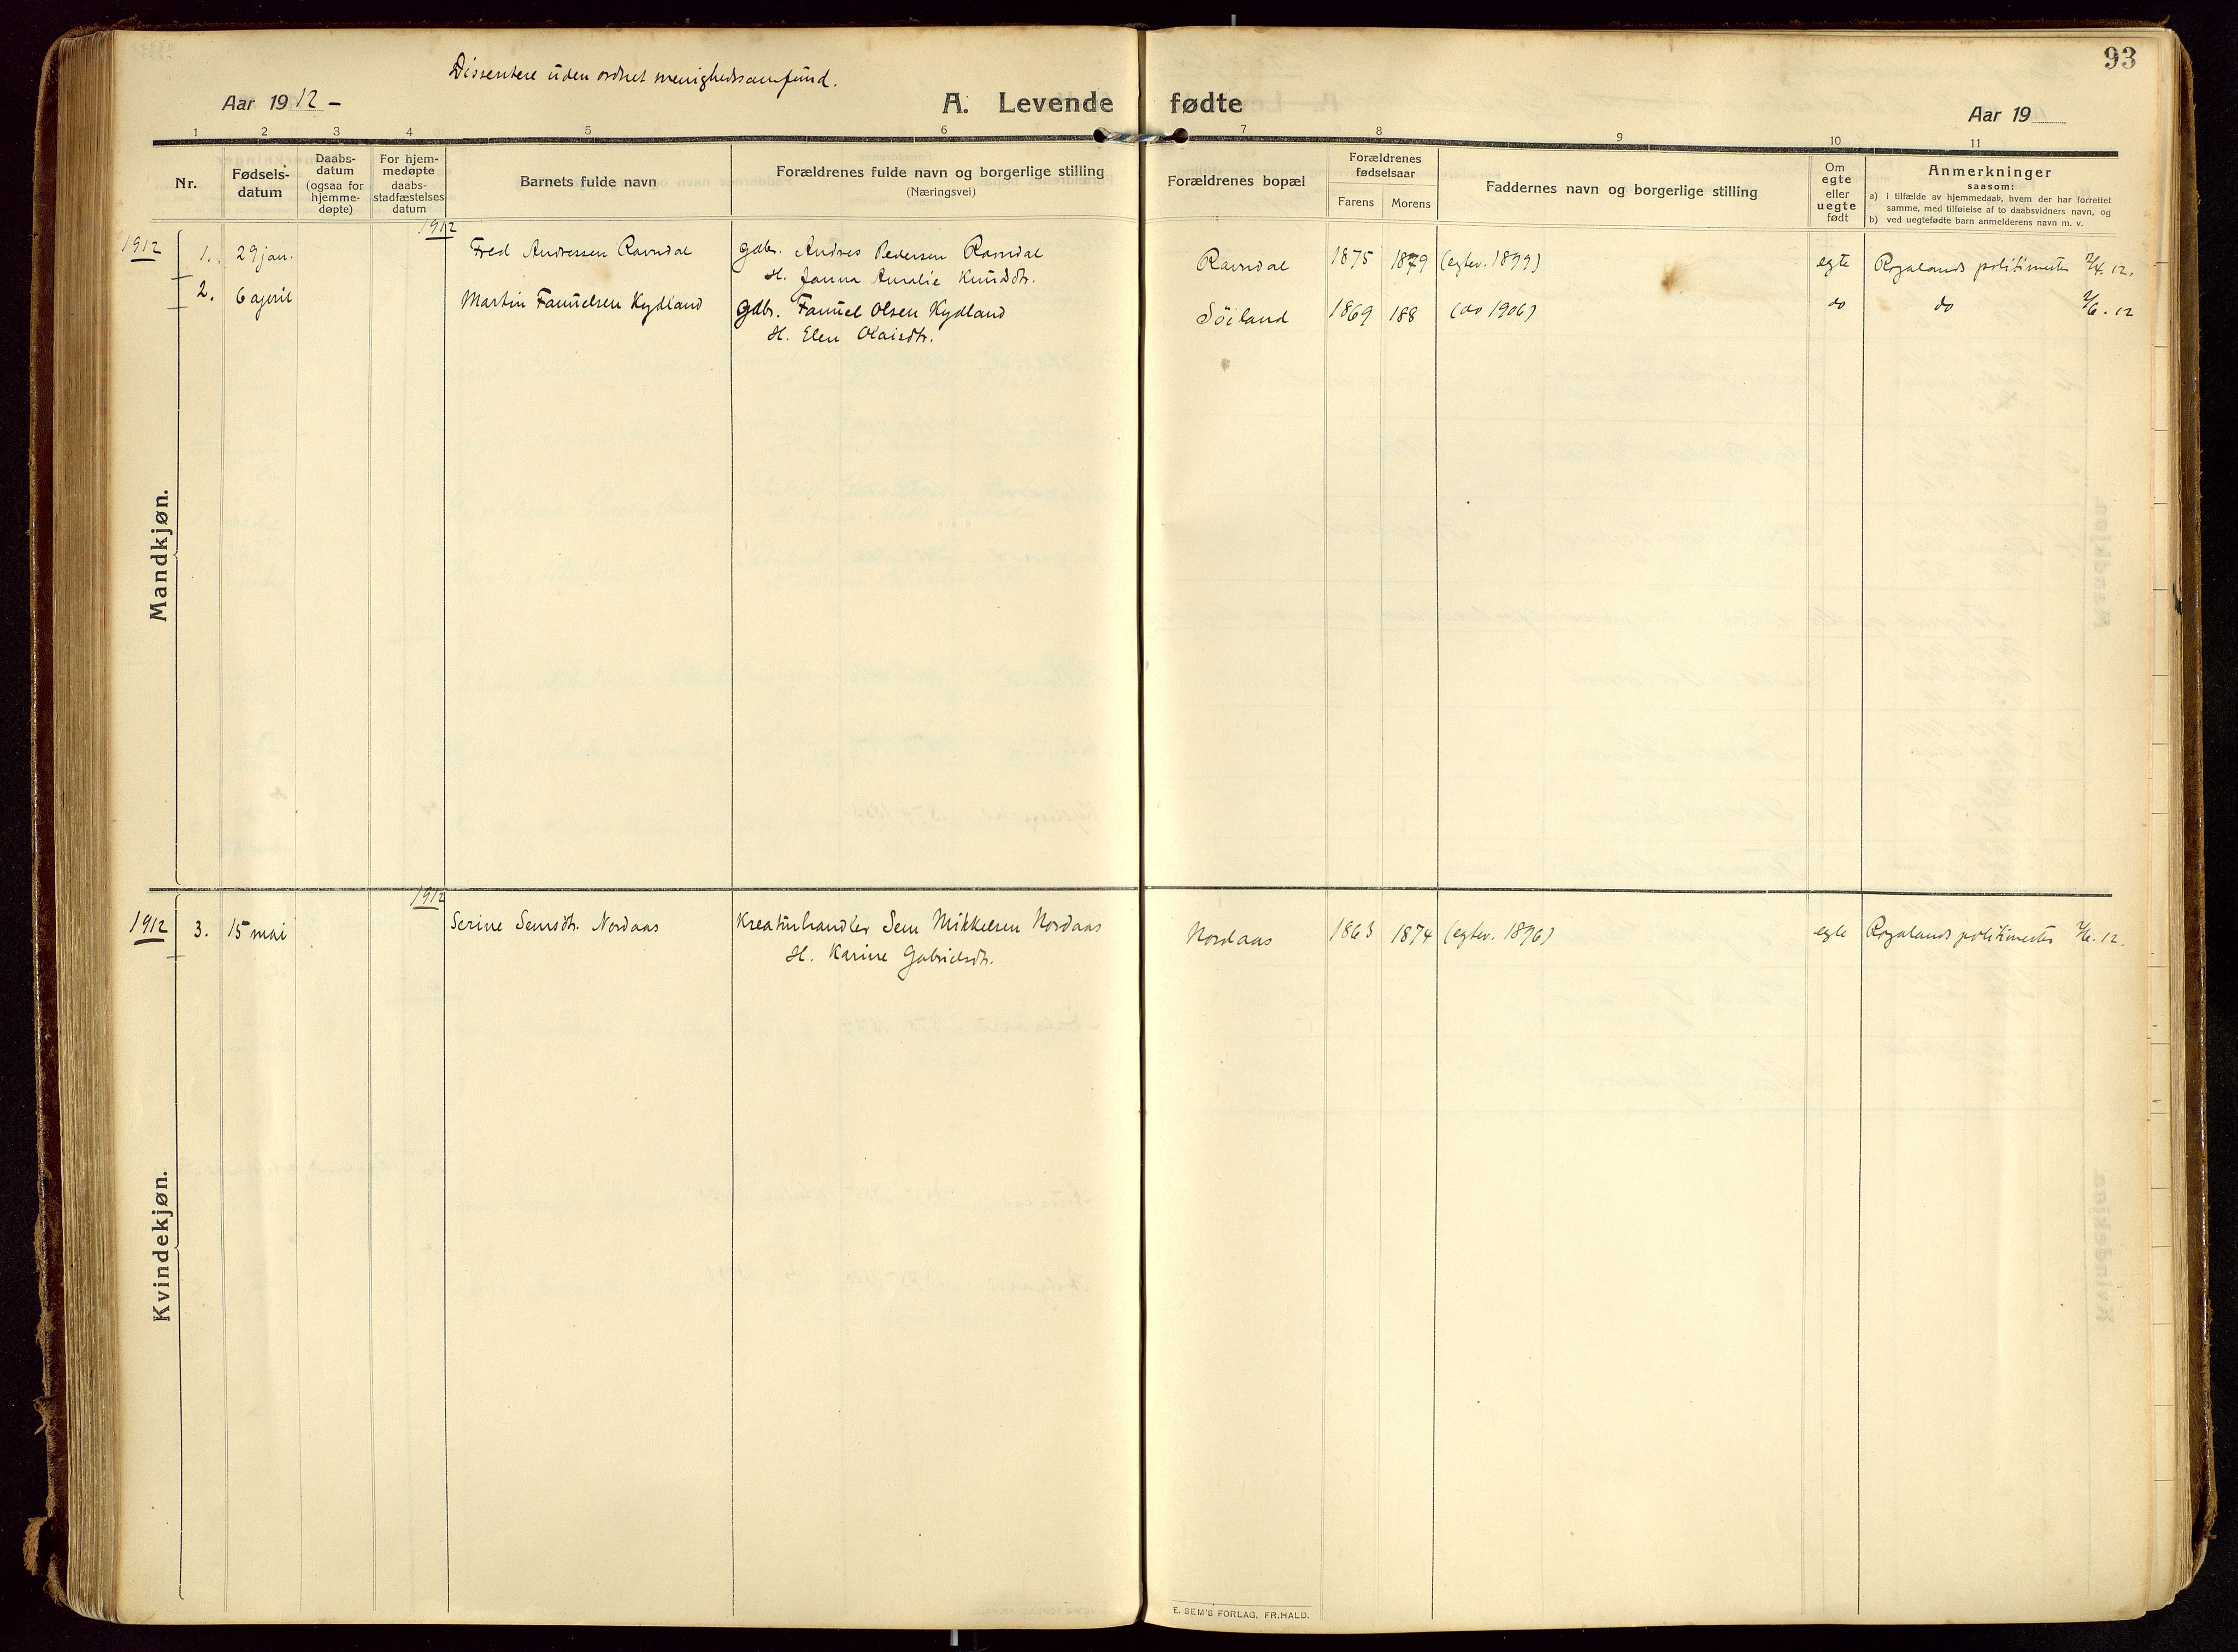 93
Dissentere uden ordnet menighedssamfund.
Aar 1912 –
A. Levende fødte
Aar 19
1 2 3 4 5 6 7 8 9 10 11
Nr.
Fødsels-
datum
Daabs-
datum
(ogsaa for
hjemme-
døpte)
For hjem-
medøpte
daabs-
stadfæstelses
datum
Barnets fulde navn
Forældrenes fulde navn og borgerlige stilling
(Næringsvei)
Forældrenes bopæl
Forældrenes
fødselsaar
Farens Morens
Faddernes navn og borgerlige stilling
Om
egte
eller
uegte
født
Anmerkninger
saasom:
a) i tilfælde av hjemmedaab, hvem der har forrettet
samme, med tilføielse af to daabsvidners navn, og
b) ved uegtefødte barn anmelderens navn m. v.
Mandkjøn.
1912 1912
1. 29 jan. Fred Andressen Ravndal gdbr. Andres Pedersen Ravndal Ravndal 1875 1879 (egtev. 1899) egte Rogalands politimester 2/4. 12.
H. Janna Amalie Knudsdtr.
2. 6 april Martin Fanuelsen Kydland gdbr. Fanuel Olsen Kydland Søiland 1869 188 (do 1906) do do 2/6. 12
H. Elen Olaisdtr.
Kvindekjøn.
1912 1912
3. 15 mai Serine Semsdtr. Nordaas Kreaturhandler Sem Mikkelsen Nordaas Nordaas 1863 1874 (egtev. 1896) egte Rogalands politimester 2/6. 12.
H. Karine Gabrielsdtr.
E. SEM'S FORLAG, FR.HALD.